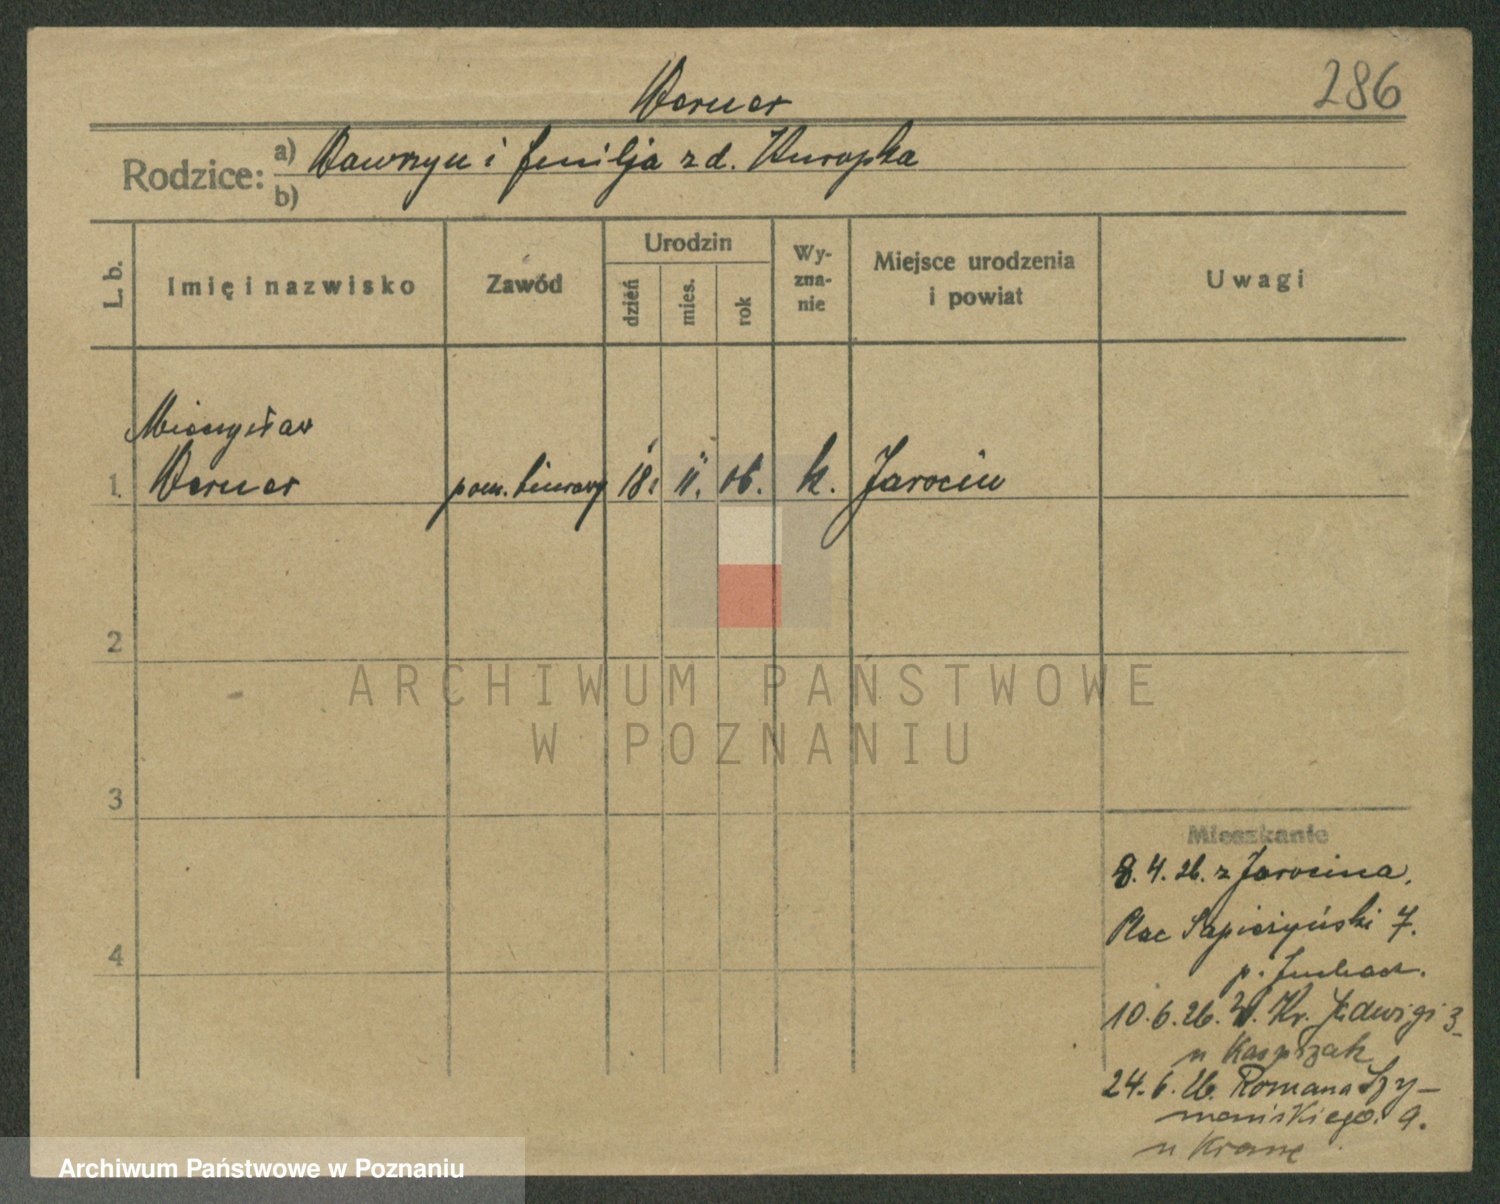 286
Werner
Rodzice: a) Wawrzyn i Emilja z d. Kuropka
b)
L. b.
Imię i nazwisko
Zawód
Urodzin
dzień
mies.
rok
Wy-
zna-
nie
Miejsce urodzenia
i powiat
Uwagi
Mieczysław
1. Werner pom. biurowy 18. 11. 06. k. Jarocin
2
3
4
Mieszkanie
8. 4. 26. z Jarocina.
Plac Sapieżyński 7.
p.
10. 6. 26. Kr. Jadwigi 3
u Kasprzak
24. 6. 26. Romana Szy-
mańskiego. 9.
u
ARCHIWUM PAŃSTWOWE
W POZNANIU
Archiwum Państwowe w Poznaniu